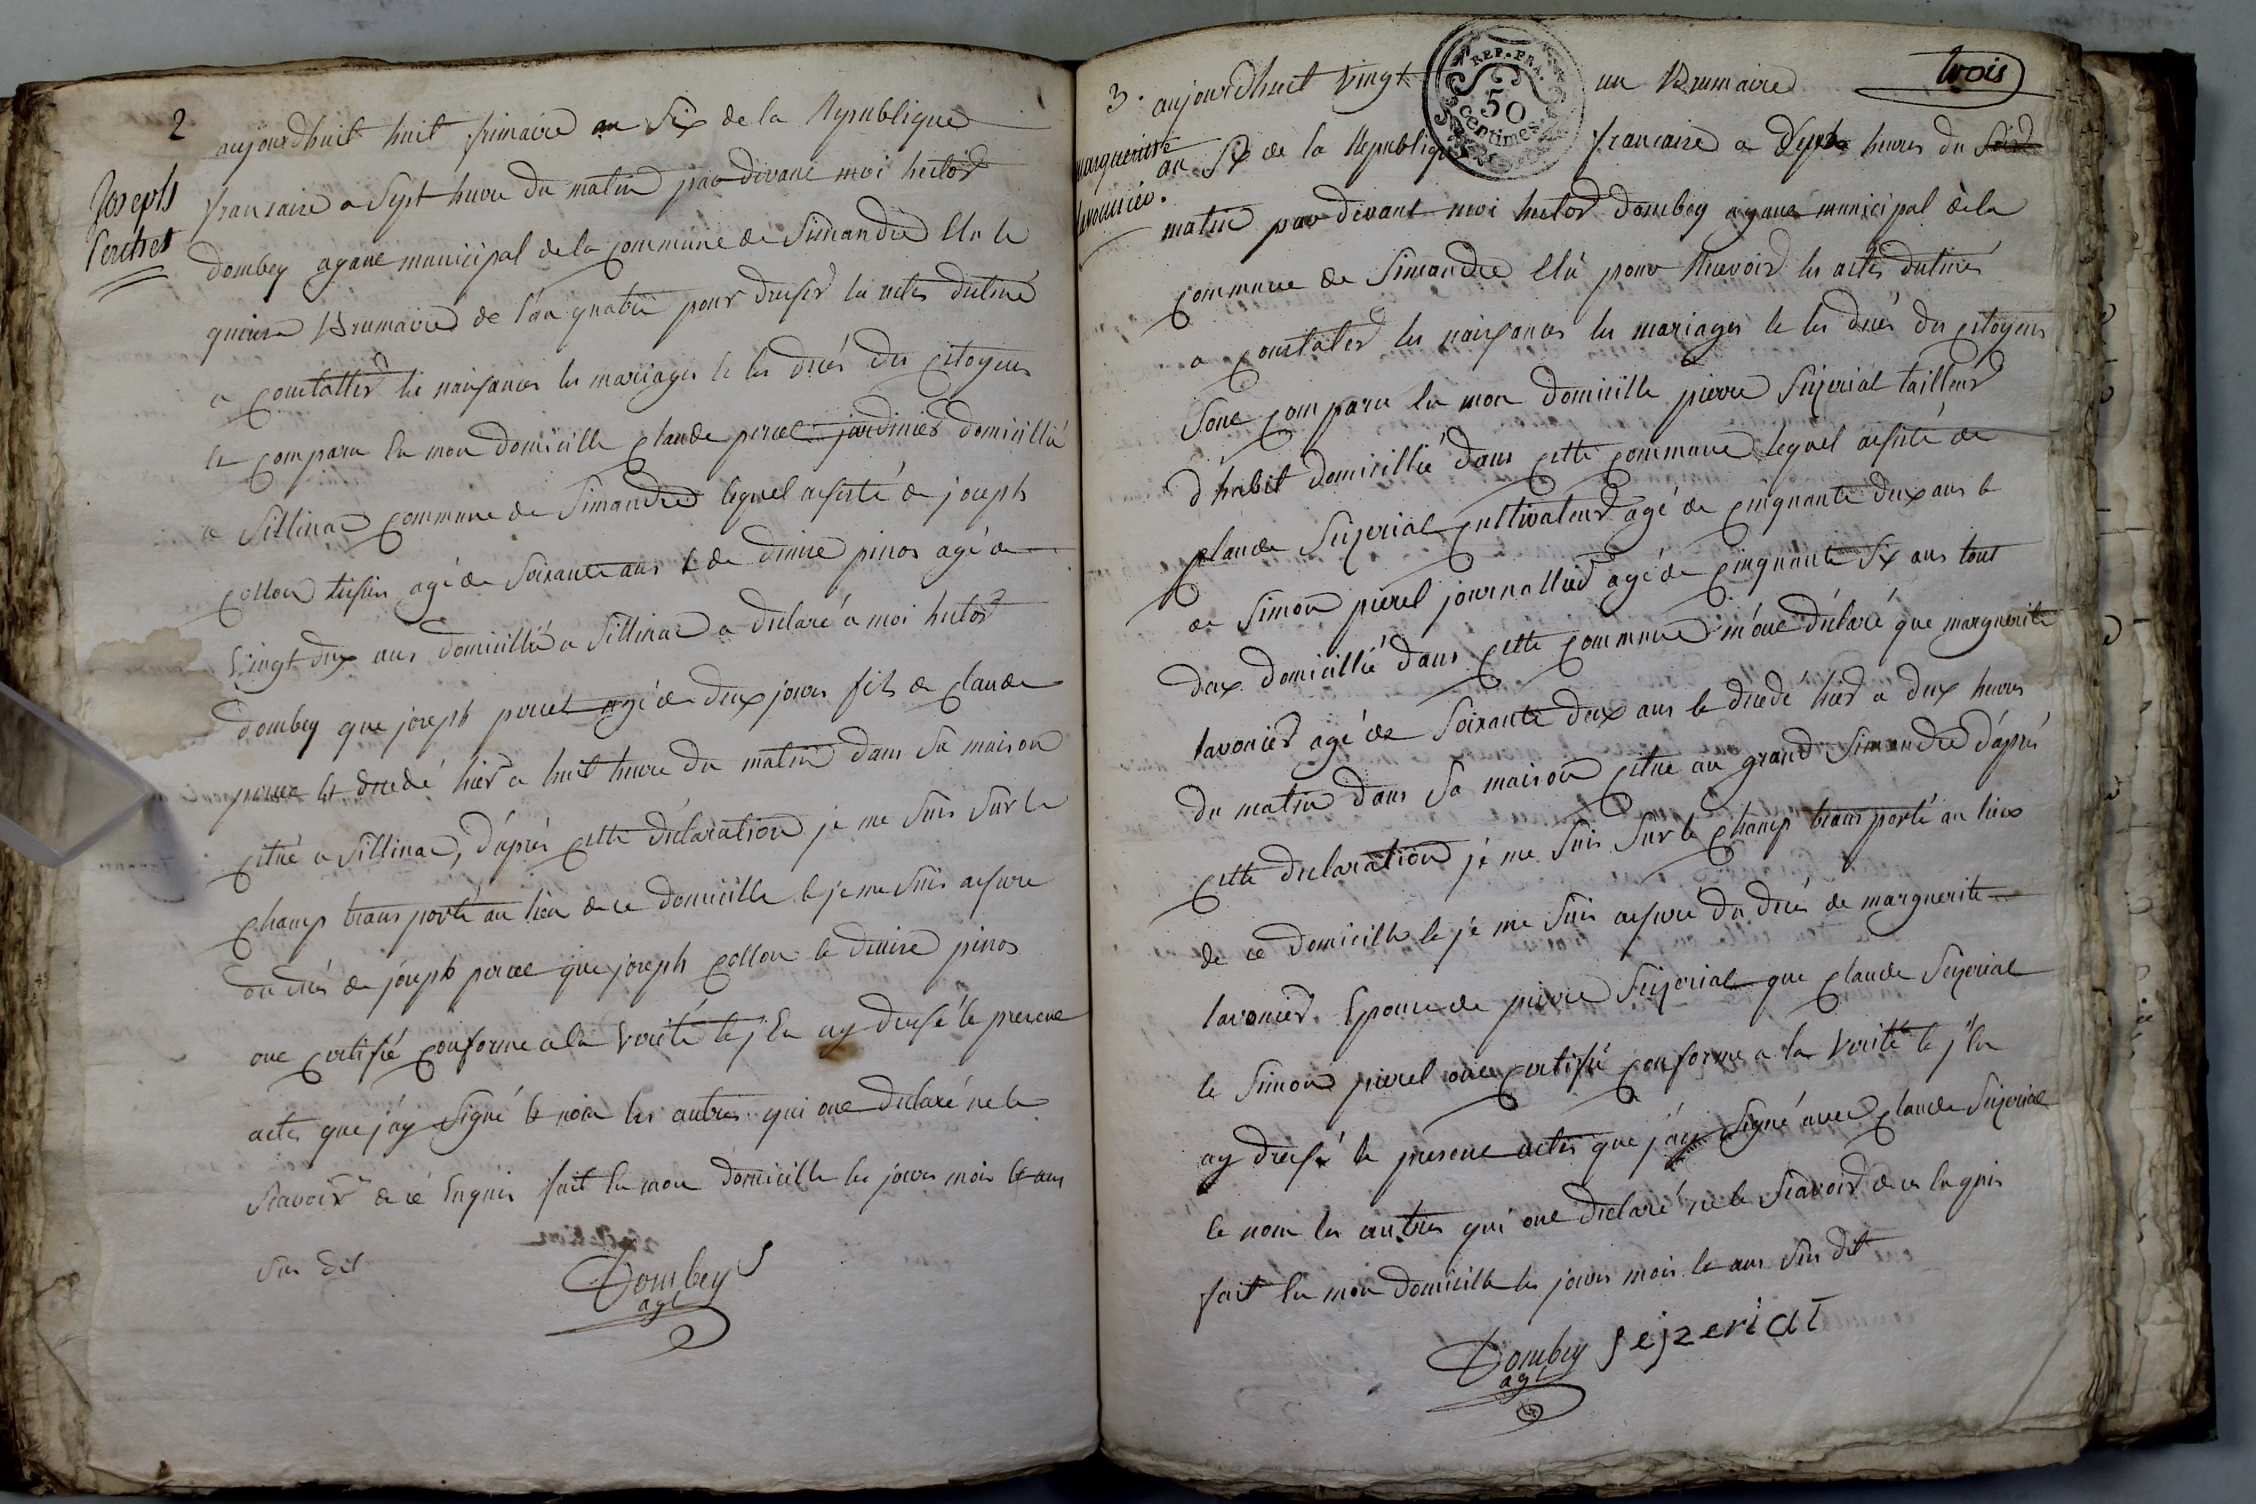 2
Joseph
Perchet
aujourdhuit huit frimaire an Six de la Republique
francaire a Sept heure du matin par devant moi hector
dombey agant municipal de la commune de Simandre Elu le
quinze Brumaire de l'an quatre pour dresser les actes destiné
a constatter les naissances les mariages et les decés des citoyens
et comparu En mon domicille claude percet jardinier domicillié
a Sillinac commune de Simandre lequel assisté de joseph
collon tissier agé de Soixante ans & de denise pinos agé de
vingt deux ans domicillié a Sillinac a declaré a moi hector
dombey que joseph percet agé de deux jours fils de claude
percet et decedé hier a huit heure du matin dans Sa maison
citué a Sillinac, d'aprés cette declaration je me suis sur le
champ transporté au lieu de ce domicille et je me suis assuré
du decés de joseph percet que joseph collon et denise pinos
ont certifié conforme a la verité et j'En ay dressé le present
actes que j'ay signé et non les autres qui ont declaré ne le
Scavoir de cé Enquis fait En mon domicille les jours mois et ans
Sus dit
Dombey
agt
trois
REP. FRA.
50
centimes.
3. aujourdhuit vingt un Brumaire
marguerite
lavonier.
an Six de la Republique francaire a Sept heures du Soir
matin par devant moi hector dombey agant municipal de la
commune de Simandre Elu pour Recevoir les actes destinés
a constater les naissances les mariages et les decés des citoyens
Sont comparu En mon domicille pierre Seijeriat tailleur
d'habit domicillié dans cette commune lequel assisté de
claude Seijeriat cultivateur agé de cinquante deux ans et
de Simon pierel journallier agé de cinquante Six ans tout
deux domicillié dans cette commune m'ont déclaré que marguerite
lavonier agé de Soixante deux ans et decedé hier a deux heures
du matin dans Sa maison citue au grand Simandre d'aprés
cette declaration je me suis sur le champ transporté au lieux
de ce domicille et je me suis assuré du decés de marguerite
lavonier Epouse de pierre Seijeriat que claude Seijeriat
et Simon pierel ont certifié conforme a la verité et j'En
ay dressé le present actes que j'ay signé avec claude Seijeriat
et nom les autres qui ont declaré ne le Scavoir de ce Enquis
fait En mon domicille les jours mois et ans Sus dit
Dombey sejzeriat
agt